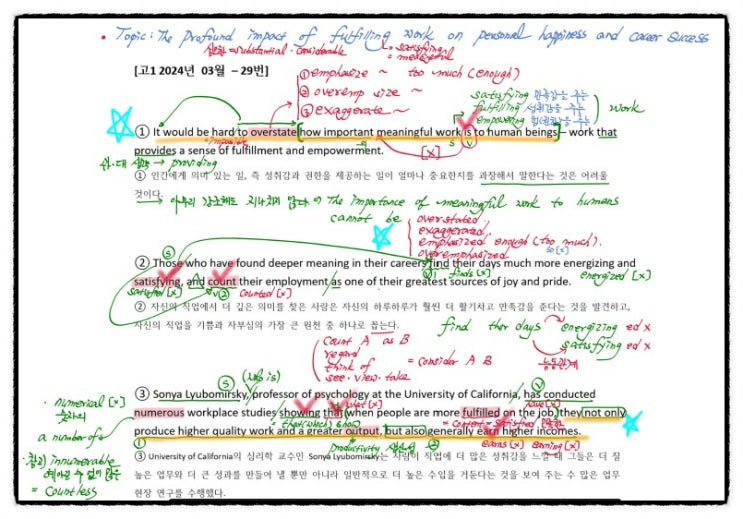 • Topic: The profound impact of fulfilling work on personal happiness and career success
= substantial · considerable = satisfying
= meaningful
[고1 2024년 03월 – 29번]
① emphasize ~ too much (enough)
② overemp size ~
③ exaggerate ~
satisfying 만족감을 주는
fulfilling 성취감을 주는
empowering 주는
work
① It would be hard to overstate how important meaningful work is to human beings – work that
=impossible
S V
provides a sense of fulfillment and empowerment.
[x]
→ providing
① 인간에게 의미 있는 일, 즉 성취감과 권한을 제공하는 일이 얼마나 중요한지를 과장해서 말한다는 것은 어려울
것이다.
→ 아무리 강조해도 지나치지 않다 The importance of meaningful work to humans
cannot be
overstated
exaggerated
emphasized enough (too much).
overemphasized
so [x]
② Those who have found deeper meaning in their careers find their days much more energizing and
finds [x]
energized [x]
satisfying, and count their employment as one of their greatest sources of joy and pride.
satisfied [x]
counted [x]
② 자신의 직업에서 더 깊은 의미를 찾은 사람은 자신의 하루하루가 훨씬 더 활기차고 만족감을 준다는 것을 발견하고,
자신의 직업을 기쁨과 자부심의 가장 큰 원천 중 하나로 꼽는다.
count A as B
regard
think of
see · view · take
= consider A B
find their days
energizing ed x
satisfying ed x
능동관계
③ Sonya Lyubomirsky, professor of psychology at the University of California, has conducted
(who is)
· numerical [x]
숫자의
what [x]
have [x]
numerous workplace studies showing that when people are more fulfilled on the job, they not only
a number of
= that (which) show
= content = satisfied
produce higher quality work and a greater output, but also generally earn higher incomes.
productivity 생산성
earns [x] earning [x]
참고) innumerable
= countless
③ University of California의 심리학 교수인 Sonya Lyubomirsky는 사람이 직업에 더 많은 성취감을 느낄 때 그들은 더 질
높은 업무와 더 큰 성과를 만들어 낼 뿐만 아니라 일반적으로 더 높은 수입을 거둔다는 것을 보여 주는 수 많은 업무
현장 연구를 수행했다.